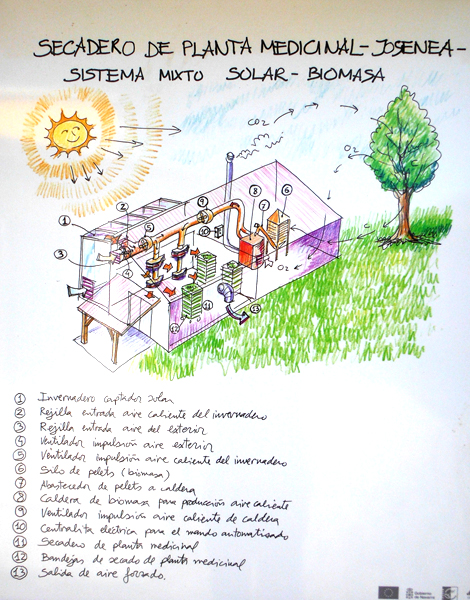 SECADERO DE PLANTA MEDICINAL-JOSENEA-
SISTEMA MIXTO SOLAR-BIOMASA
CO2
O2
C
O2
1
2
3
4
5
9
10
8
7
6
11
12
13
① Invernadero captador solar
② Rejilla entrada aire caliente del invernadero
③ Rejilla entrada aire del exterior
④ Ventilador impulsión aire exterior
⑤ Ventilador impulsión aire caliente del invernadero
⑥ Silo de pelets (biomasa)
⑦ Abastecedor de pelets a caldera
⑧ Caldera de biomasa para producción aire caliente
⑨ Ventilador impulsión aire caliente de caldera
⑩ Centralita eléctrica para el mando automatizado
⑪ Secadero de planta medicinal
⑫ Bandejas de secado de planta medicinal
⑬ Salida de aire forzado.
Gobierno
de Navarra